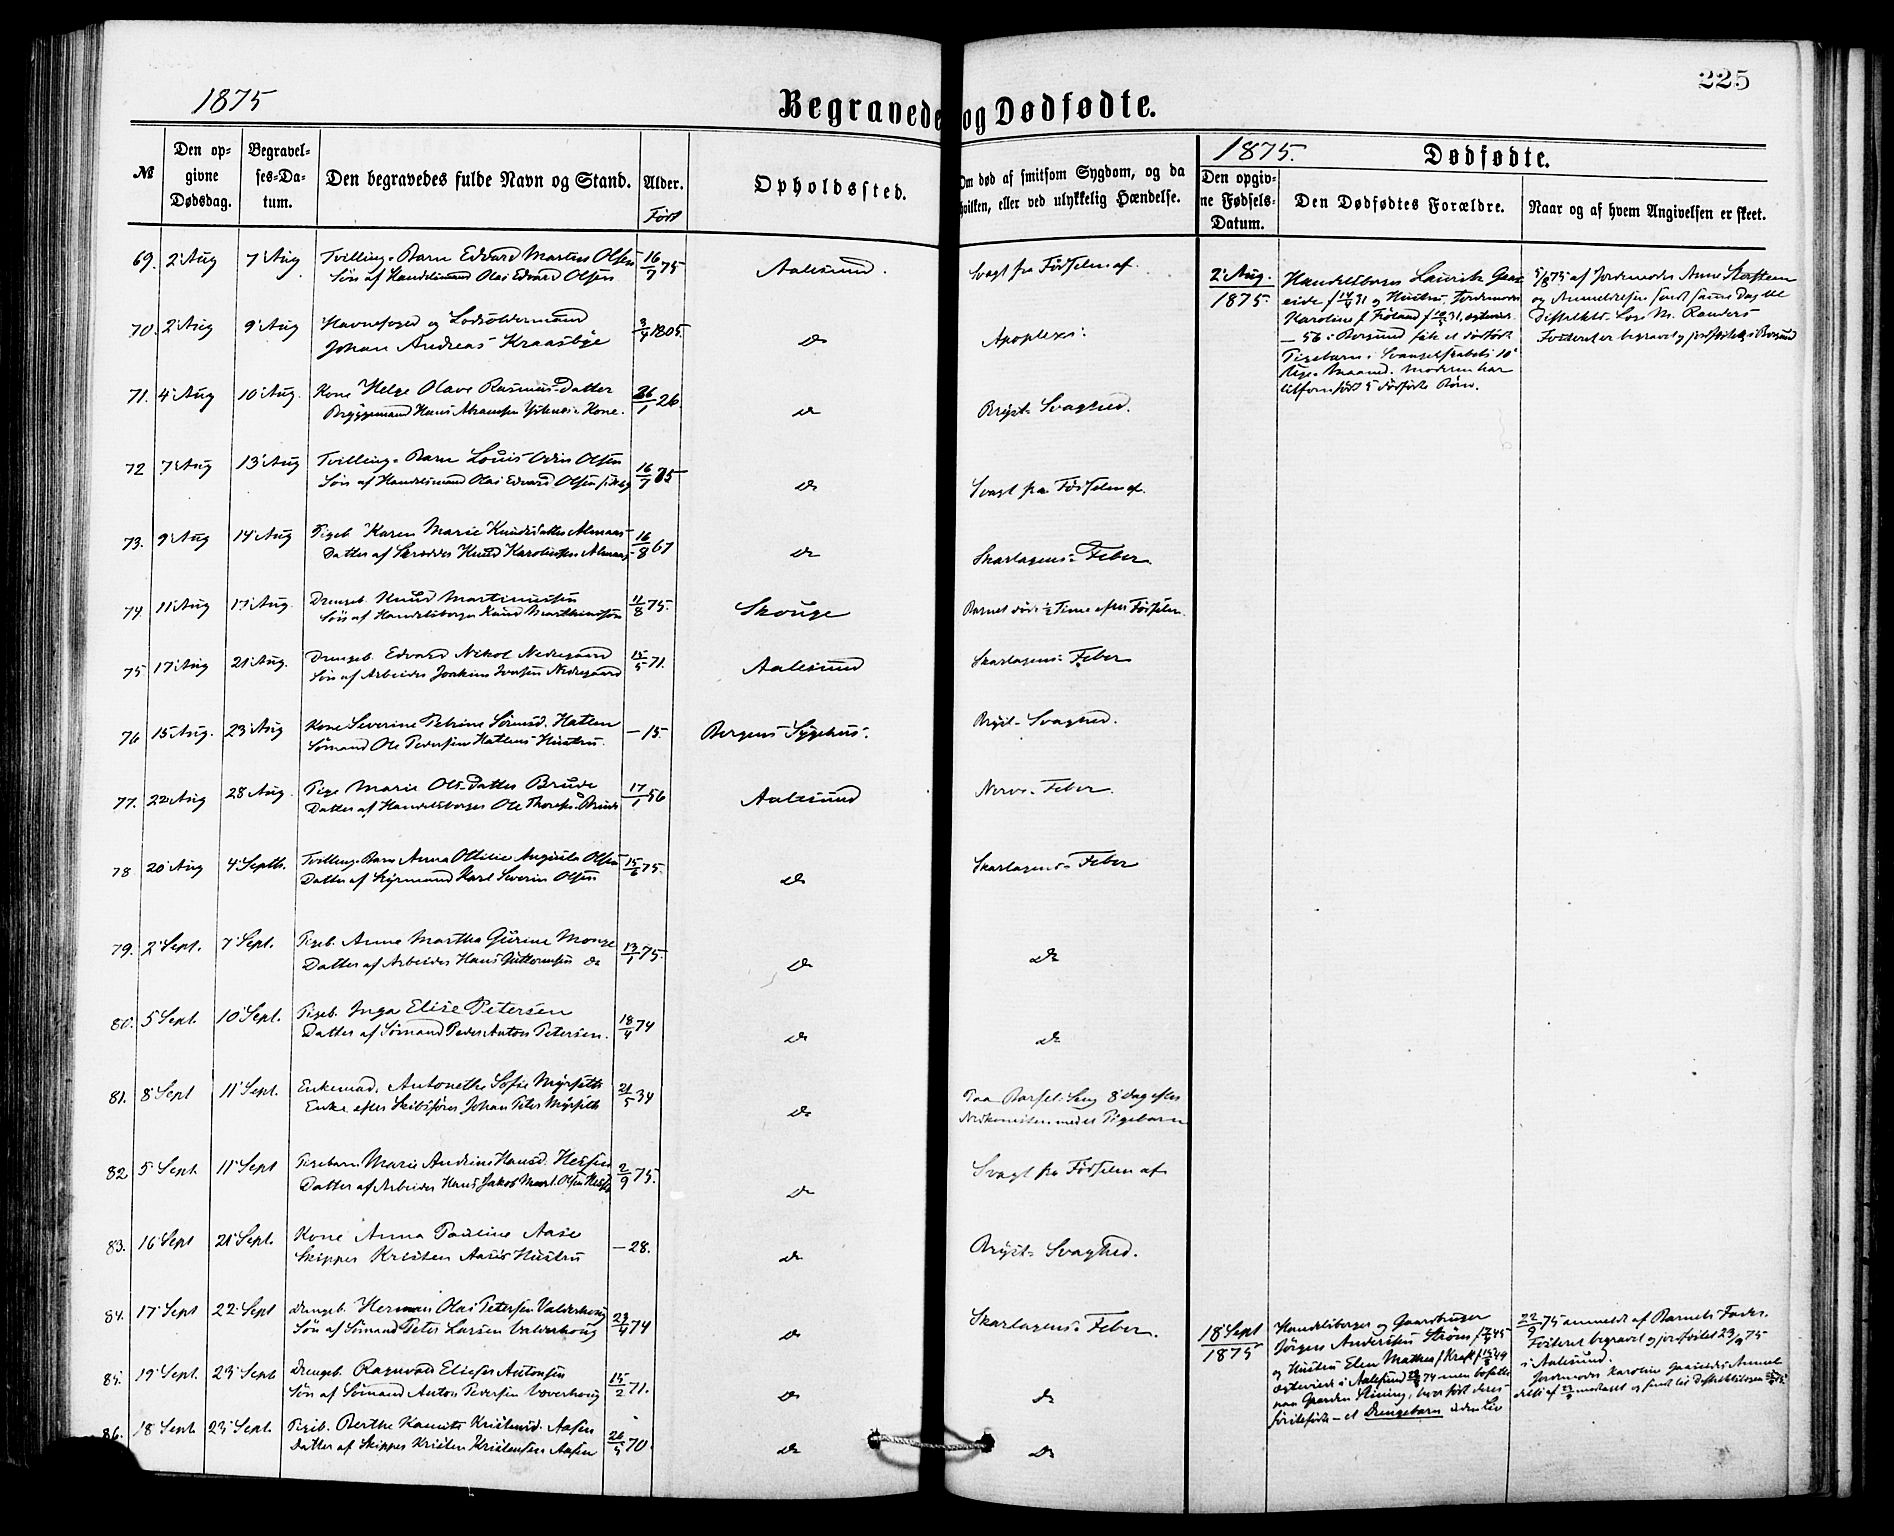 225
1875
Begravede og Dødfødte.
№
Den opgivne Dødsdag.
Begravelses-Datum.
Den begravedes fulde Navn og Stand.
Alder.
Født
Opholdssted.
Om død af smitsom Sygdom, og da hvilken, eller ved ulykkelig Hændelse.
1875.
Dødfødte.
Den opgivne Fødsels-Datum.
Den Dødfødtes Forældre.
Naar og af hvem Angivelsen er skeet.
69. 2 Aug 7 Aug Tvilling-Barn Edvard Martin Olsen 16/7 75 Aalesund. Svagt fra Fødselen af.
Søn af Handelsmand Olai Edvard Olsen
70. 2 Aug 9 Aug Havnefoged og Lodsoldermand 1805 do Apoplexi.
Johan Andreas Kraasbye
71. 4 Aug 10 Aug. Kone Helge Olave Rasmus-Datter 26/1 26 do Bryst-Svaghed.
Bryggemand Hans Kone.
72 7 Aug 13 Aug Tvilling-Barn Louis Odin Olsen 16/7 75 do Svagt fra Fødselen af.
Søn af Handelsmand Olai Edvard Olsen
73. 9 Aug 14 Aug Pigeb. Karen Marie Knudsdatter Almaas 16/8 67 do Skarlagens-Feber
Datter af Skrædder Knud Karolussen Almaas
74. 11 Aug 17 Aug. Drengeb. Knud Martinussen 11/8 75. Skouge Barnet døde ½ Time efter Fødselen.
Søn af Handelsborger Knud Martinussen
75. 17 Aug 21 Aug. Drengeb. Edvard Nikol Nedregaard 15/5 71. Aalesund Skarlagens-Feber
Søn af Arbeider Joakim Iversen Nedregaard
76 15 Aug. 23 Aug Kone Severine Petrine Hatlen — 15. Bergens Sygehus. Bryst-Svaghed.
Sømand Ole Pedersen Hatlens Hustru.
77. 22 Aug 28 Aug. Pige Marie Ols-Datter Brude 17/1 56 Aalesund Nerve-Feber.
Datter af Handelsborger Ole Brude
78 20 Aug 4 Septb. Tvilling-Barn Anna Ottilie Augusta Olsen 15/6 75. do Skarlagens-Feber
Datter af Styrmand Karl Severin Olsen
79. 2 Sept. 7 Sept. Pigeb. Anna Martha Gurine Monge 13/1 75. do do
Datter af Arbeider Hans Guttormsen do
80. 5 Sept. 10 Sept. Pigeb. Inga Elise Petersen 18/4 74 do do
Datter af Sømand Peder Anton Petersen.
81. 8 Sept 11 Sept. Enkemad. Antonethe Sofie Myrseth 21/5 34 do Paa Barsel-Seng 8 dag efter
Enke efter Skibsfører Johan Peter Myrseth Nedkomsten med et Pigebarn
82 5 Sept. 11 Sept Pigebarn Marie Andrine Hansd. Hessen 2/9 75. do Svagt fra Fødselen af
Datter af Arbeider Hans Jakob Mart. Olsen
83. 16 Sept 21 Sept. Kone Anna Pauline Aase — 28. do Bryst-Svaghed.
Skipper Kristen Aases Hustru
84. 17 Sept 22 Sept Drengeb. Herman Olai Petersen Valderhoug 74 do Skarlagens-Feber.
Søn af Sømand Peter Larsen Valderhoug
85. 19 Sept. 23 Sept Drengeb. Ragnvald Elias Antonsen 15/2 71. do do
Søn af Sømand Anton Pedersen
86. 18 Sept 23 Sept. Pigeb. Berthe Kristensd. Aasen 26/5 70. do do
Datter af Skipper Kristen Kristensen Aasen
2 Aug.
1875
Handelsborger Laurits
og Hustru, Jordemoder
Karoline
— 56 i Borgund født et dødfødt
Pigebarn i Svangerskabets 10
Uge-Maaned. Moderen har
tilforn født 5 dødfødte Børn.
5/8 75 af Jordemoder Anne
og Anmeldelsen sendt samme Dag til
Distriktsl. Randers
Fosteret er begravet og jordfæstet i Borgund
18 Sept
1875
Handelsborger og Gaardbruger
Jørgen Andersen Strøm
og Hustru Elen Mathea f. Kraft
ægteviede i Aalesund 74 men bosatte
paa Gaarden
førstefødte — et Drengebarn uden Liv
22/9 75 anmeldt af Barnets Fader.
Fosteret begravet og jordfæstet 23/9 75
i Aalesund.
Jordemoder Karoline Anmel-
delse af modtaget og sendt til Distriktslægen